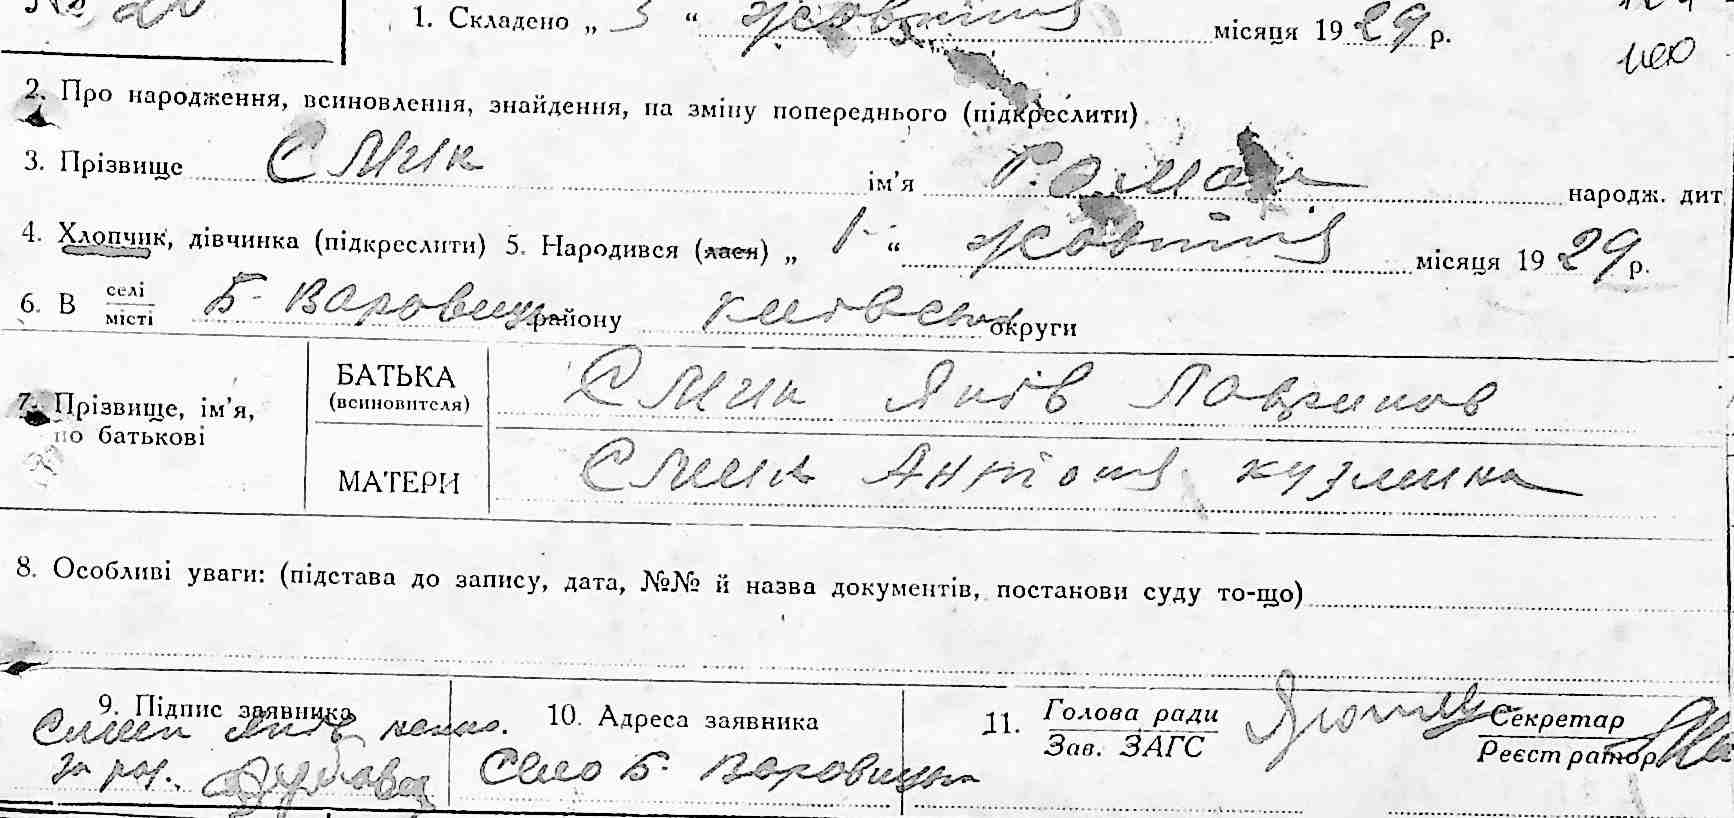 1. Складено „ 3 “ жовтня місяця 1929 р.
2. Про народження, всиновлення, знайдення, на зміну попереднього (підкреслити)
3. Прізвище Смик ім’я Роман народж. дит
4. Хлопчик, дівчинка (підкреслити) 5. Народився (лася) „ 1 “ жовтня місяця 1929 р.
6. В селі
місті Б. Воровицьк району Київськ округи
7. Прізвище, ім’я,
по батькові
БАТЬКА
(всиновителя)
Смик Яків
МАТЕРИ
Смик Антоня Кузмина
8. Особливі уваги: (підстава до запису, дата, №№ й назва документів, постанови суду то-що)
9. Підпис заявника
Смик Яків
за
10. Адреса заявника
Село Б. Воровицьк
11. Голова ради
Зав. ЗАГС
Секретар
Реєстратор